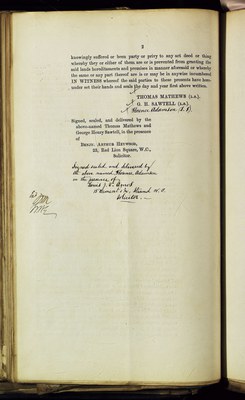 3
knowingly suffered or been party or privy to any act deed or thing
whereby they or either of them are or is prevented from granting the
said lands hereditaments and premises in manner aforesaid or whereby
the same or any part thereof are is or may be in anywise incumbered
IN WITNESS whereof the said parties to these presents have here-
under set their hands and seals the day and year first above written.
THOMAS MATHEWS (L.S.)
G. H. SAWTELL (L.S.)
Horace Adamson (L.S.)
Signed, sealed, and delivered by the
above-named Thomas Mathews and
George Henry Sawtell, in the presence
of
ARTHUR
23, Red Lion Square, W.C.,
Solicitor.
Signed sealed and delivered by
the above named Horace Adamson
in the presence of
Strand W.C.
Solicitor